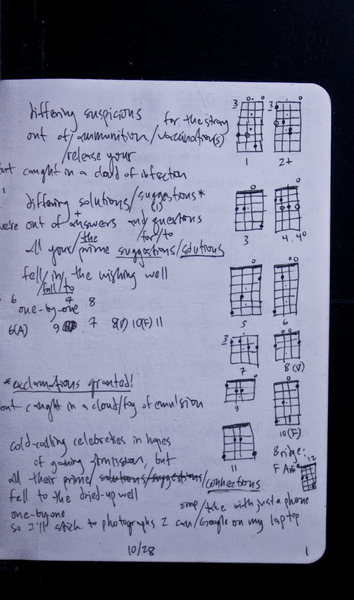 differing suspicions for the strong
out of / ammunition / vaccination(s)
/ release your
but caught in a cloud of infection
differing solutions / suggestions *
we're out of answers and questions
/ the for / to
all your / prime suggestions / solutions
fall / in / the wishing well
/ fall / to
6 7 8
one-by-one
6(A) 9 7 8(V) 10(F) 11
* exclamations granted!
but caught in a cloud / fog of emulsion
cold-calling celebrities in hopes
of gaining, but
all their prime / solutions / suggestions / connections
fell to the dried-up well
one-by-one some / take with just a phone
so I'll stick to photographs I can / Google on my laptop
3 3
1 2+
3 4, 4°
5 6
3
7 8(V)
9 10(F)
11
Bridge:
F Am 12
10/28 1